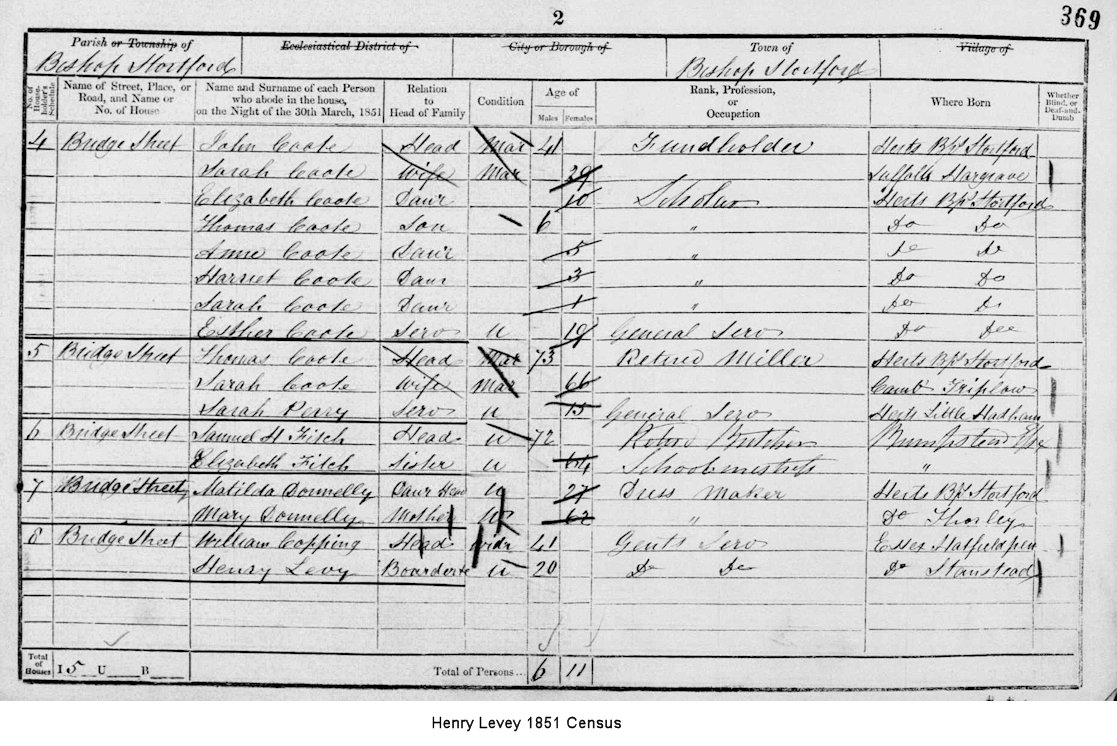 2
369
Parish or Township of Ecclesiastical District of City or Borough of Town of Village of
Bishop Stortford Bishop Stortford
No. of House-holder's Schedule Name of Street, Place, or Road, and Name or No. of House Name and Surname of each Person who abode in the house, on the Night of the 30th March, 1851 Relation to Head of Family Condition Age of Males Females Rank, Profession, or Occupation Where Born Whether Blind, or Deaf-and-Dumb
4 Bridge Street John Coote Head Mar 41 Fundholder Herts Bps Stortford
Sarah Coote Wife Mar 29 Suffolk Hargrave
Elizabeth Coote Daur 10 Scholar Herts Bps Stortford
Thomas Coote Son 6 " Do Do
Anne Coote Daur 5 " Do Do
Harriet Coote Daur 3 " Do Do
Sarah Coote Daur 1 " Do Do
Esther Coote Serv U 19 General Serv Do Do
5 Bridge Street Thomas Coote Head Mar 73 Retired Miller Herts Bps Stortford
Sarah Coote Wife Mar 66 Camb Triplow
Sarah Perry Serv U 15 General Serv Herts Little Hadham
6 Bridge Street Samuel H Fitch Head U 72 Butcher Bumpstead
Elizabeth Fitch Sister U 64 Schoolmistress "
7 Bridge Street Matilda Donnelly Daur Head U 27 Dress Maker Herts Bps Stortford
Mary Donnelly Mother W 62 " Do Thorley
8 Bridge Street William Copping Head Widr 41 Gents Serv Essex Hatfield
Henry Levy Boarder U 20 Do Do Do Stanstead
Total of Houses I 5 U B Total of Persons 6 11
Henry Levey 1851 Census